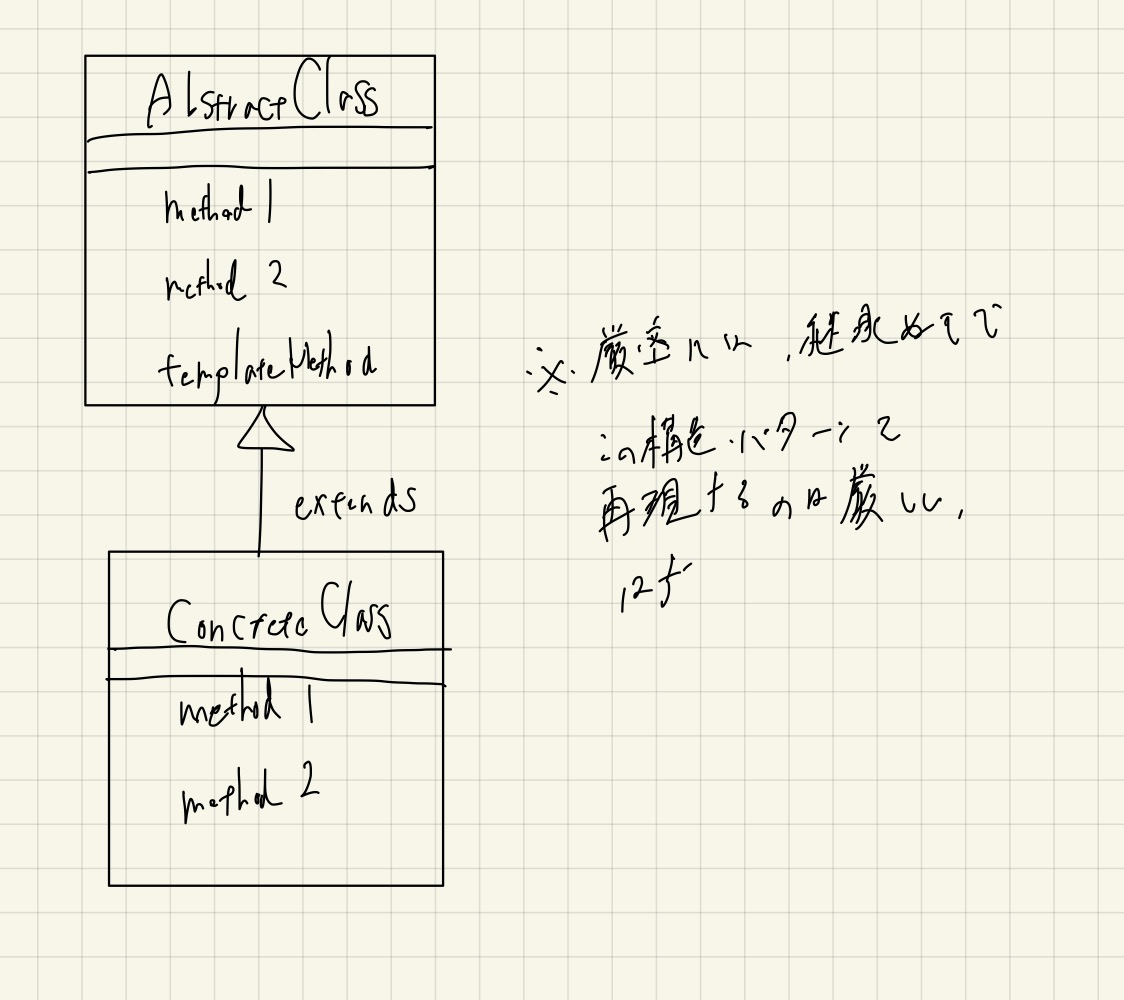 AbstractClass
method 1
method 2
templateMethod
extends
ConcreteClass
method 1
method 2
※厳密には、継承めきで
この構造・パターンを
再現するのは厳しい、
はず